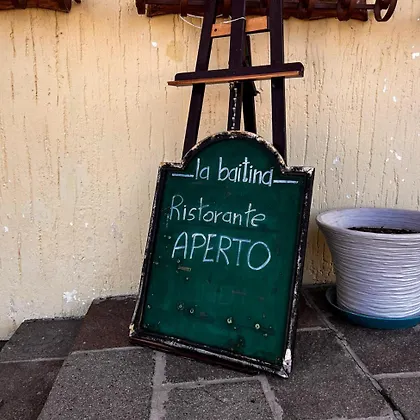 la baitina
Ristorante
APERTO